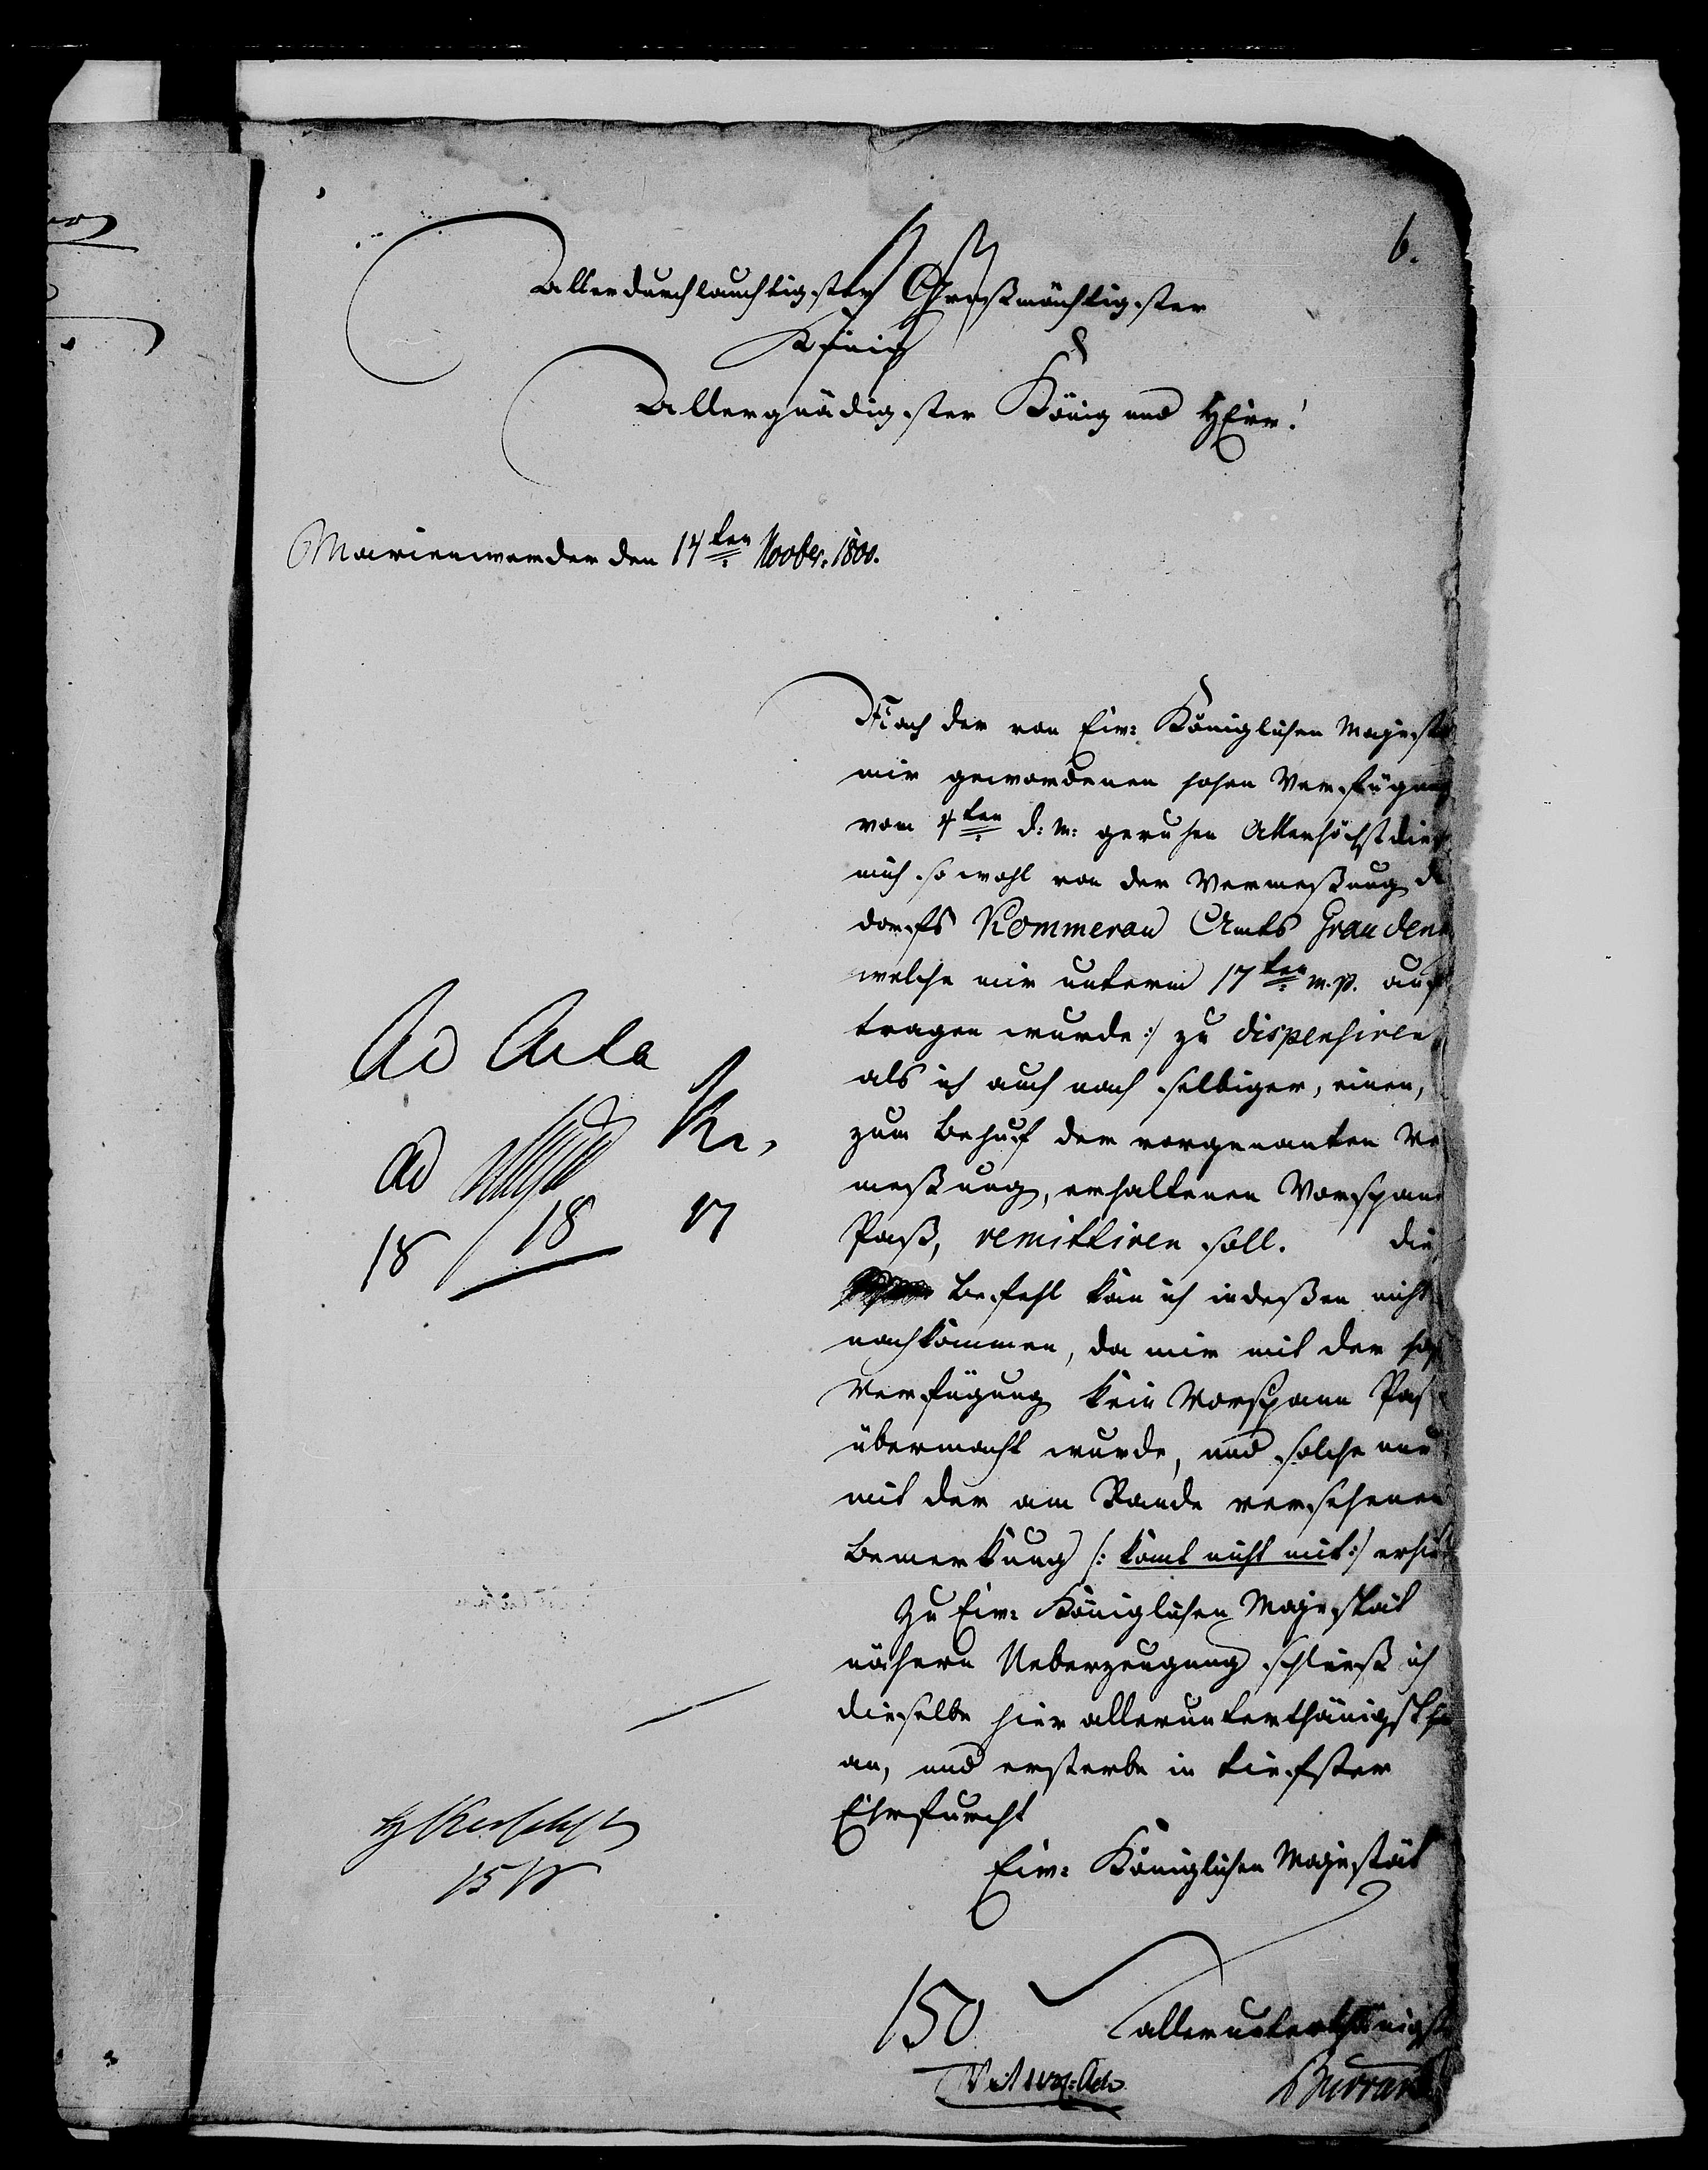 6.
Allerdurchlauchtigster Großmächtigster
König
Allergnädigster König und HErr!
Marienwerder den 14ten Novbr. 1800.
Nach der von Ew: Königlichen Majestä
mir gewordenen hohen Verfügung
vom 4ten d: M: geruhen Allerhöchstdie
mich sowohl von der Vermeßung d
dorfs Kommerau Amts Graudentz
welche mir unterm 17ten m. p. auf
tragen wurde :/ zu dispensiren
als ich auch nach selbiger, einen,
zum Behuf der vorgenanten Ve
meßung, erhaltenen Vorspann
Paß, remittiren soll. die
Befehl kan ich indeßen nicht
nachkommen, da mir mit der ho
Verfügung kein Vorspann Paß
übermacht wurde, und solche nur
mit der am Rande versehenen
Bemerkung /: komt nicht mit :/ erhie
Zu Ew: Königlichen Majestät
nähern Ueberzeugung schließ ich
dieselbe hier allerunterthänigst
an, und ersterbe in tiefster
Ehrfurcht
Ew: Königlichen Majestät
allerunterthänigst
Ad Acta
ad
18 18 17
15
150